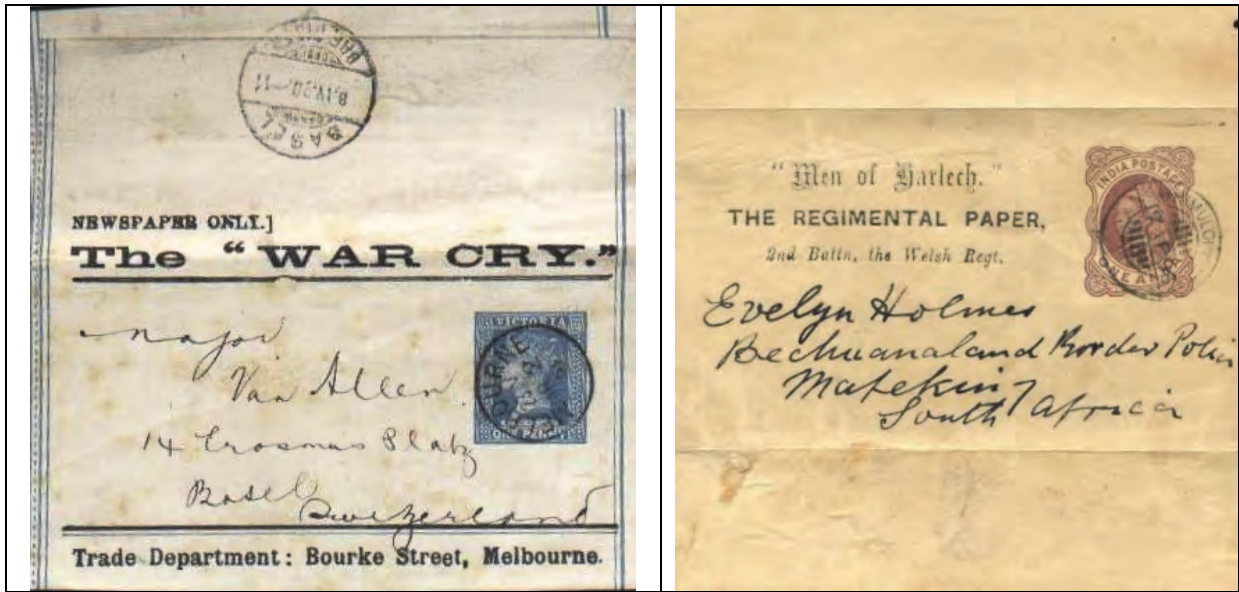 BASEL
8.IV.90.-11
NEWSPAPER ONLY.]
The “WAR CRY.”
VICTORIA
MELBOURNE
Major
Van Allen.
14 Erasmus Platz
Basel
Switzerland
Trade Department: Bourke Street, Melbourne.
“Men of Harlech.”
THE REGIMENTAL PAPER,
2nd Battn, the Welsh Regt.
INDIA POSTAGE
ONE ANNA
Evelyn Holmes
Bechuanaland Border Police
Mafeking
South Africa